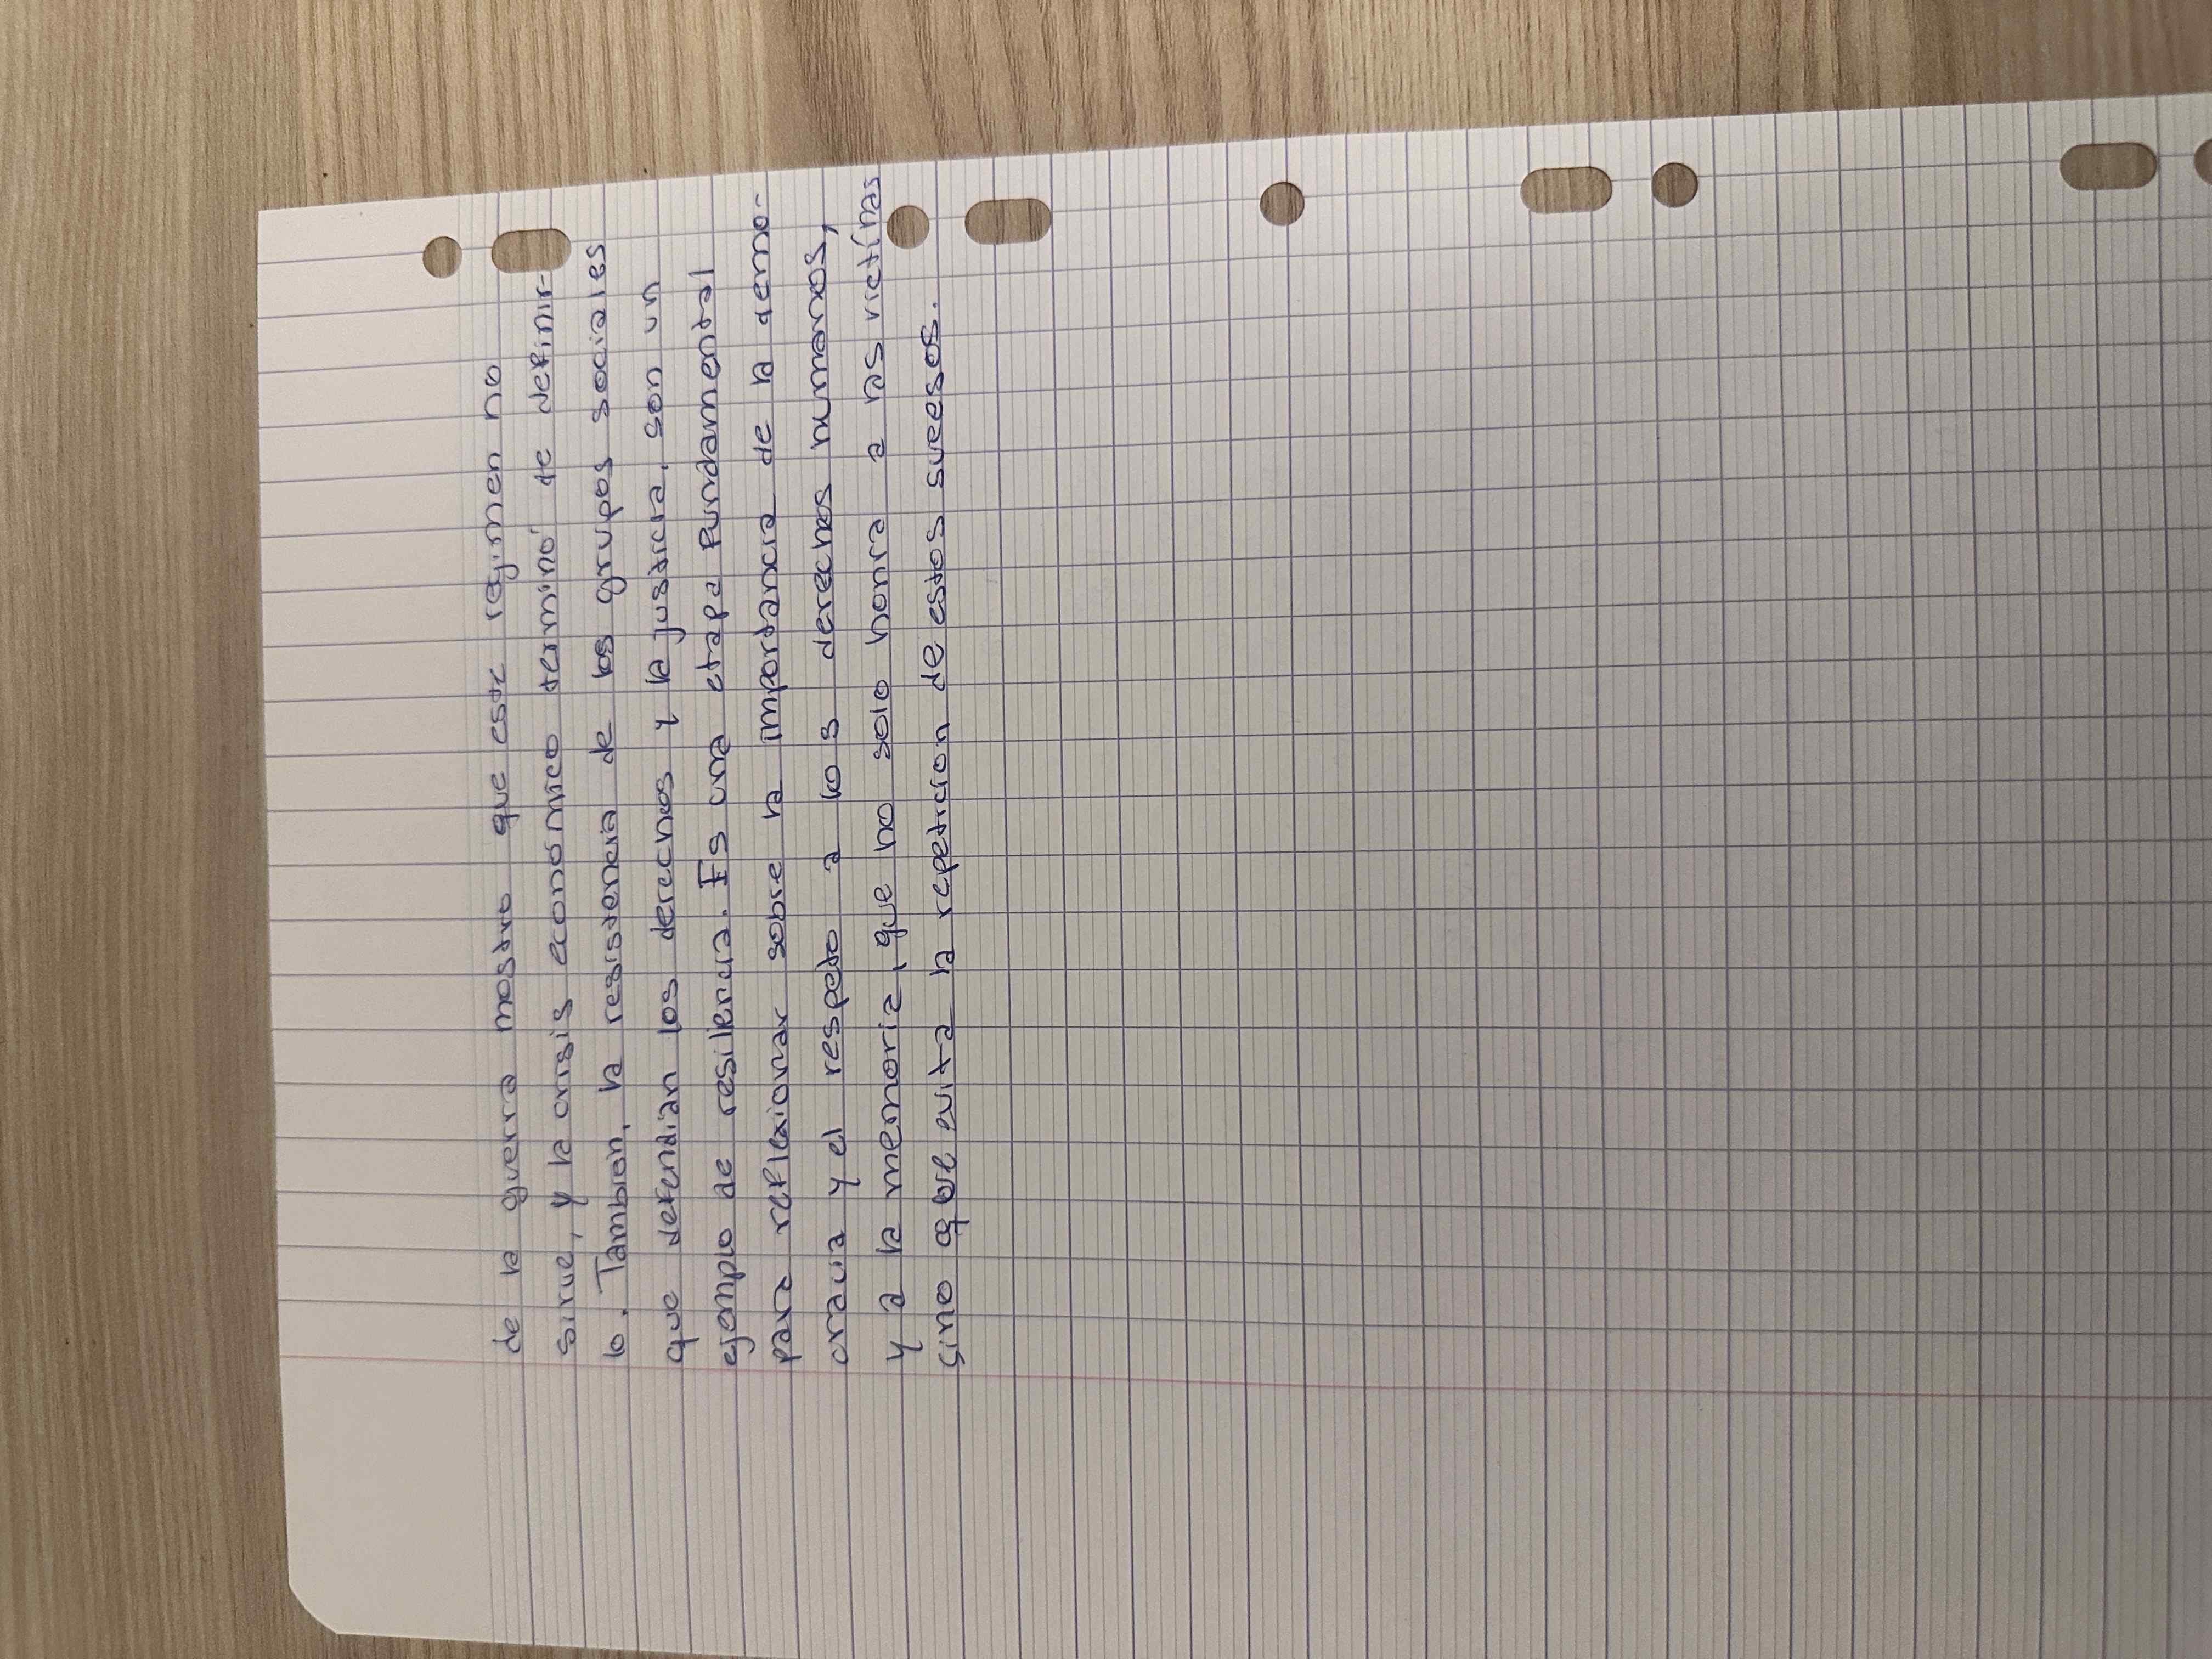 de la guerra mostro que este regimen no
sirve, y la crisis económico terminó de definir-
lo. Tambien, la resistencia de los grupos sociales
que defendian los derechos y la justicia, son un
ejemplo de resiliencia. Es una etapa fundamental
para reflexionar sobre la importancia de la demo-
cracia y el respeto a los derechos humanos,
y a la memoria, que no solo honra a las victimas
sino que evita la repeticion de estos sucesos.